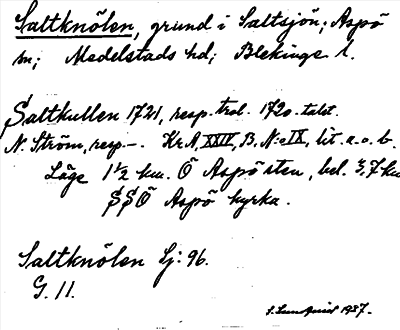 Saltknölen, grund i Saltsjön; Aspö
sn; Medelstads hd; Blekinge l.
Saltkullen 1721, resp. trol. 1720-talet.
N. Ström, resp. –. Kr.A. XXIV, B. N:o IX, lit a. o. b.
Läge 1½ km. Ö Aspö sten, bel. 3,7 km
SSÖ Aspö kyrka.
Saltknölen Sj: 96.
G. 11.
S. Lundquist 1937.